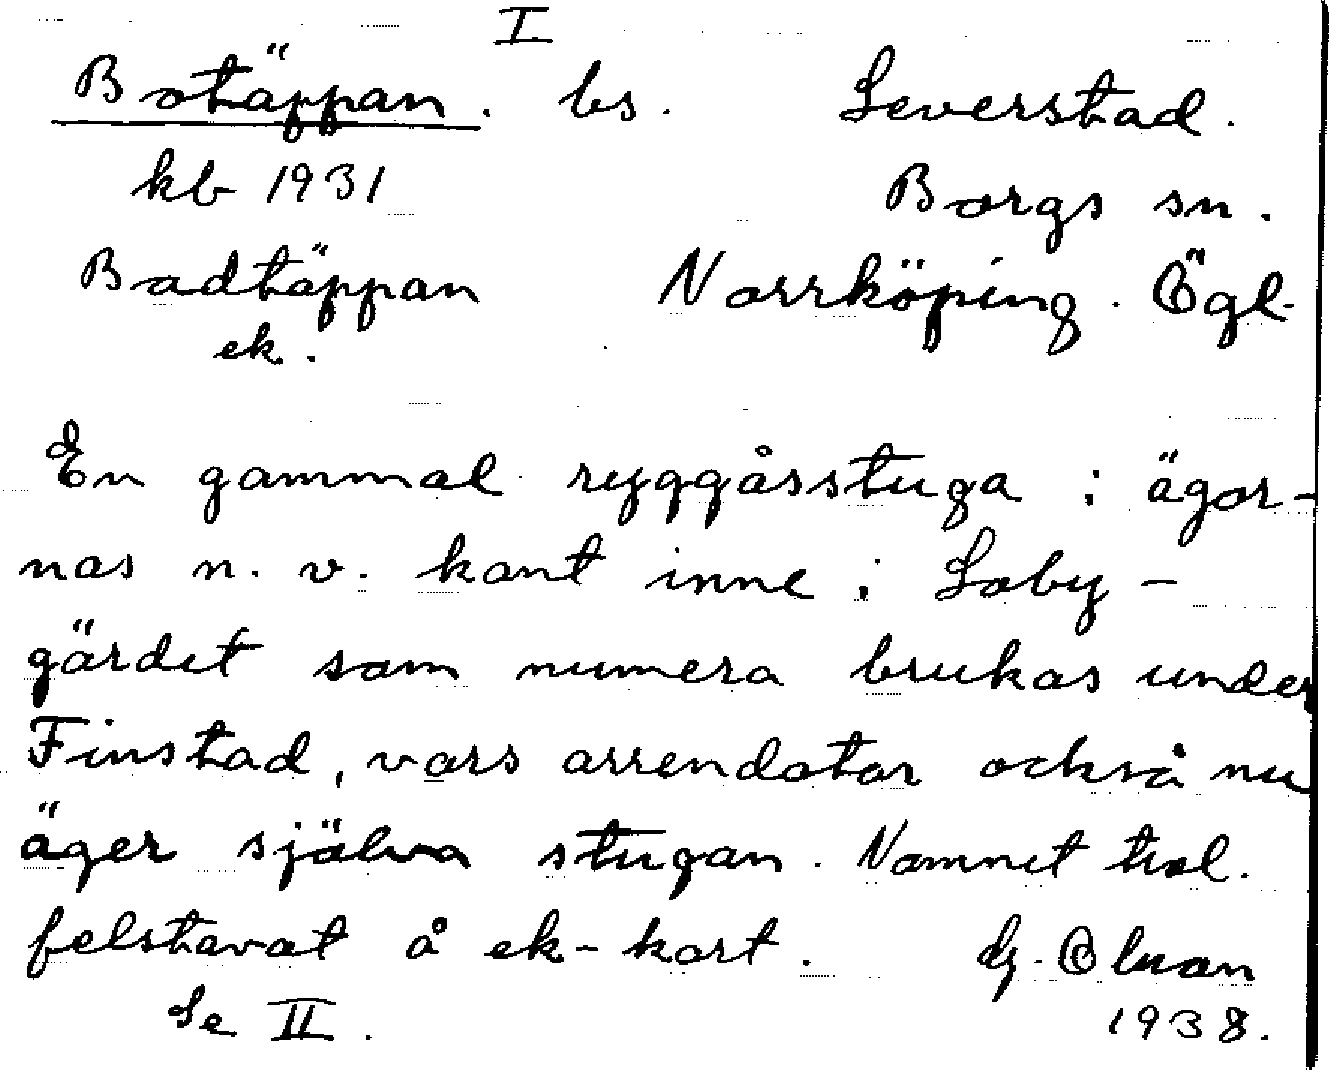 I
Botäppan. bs. Leverstad.
kb 1931 Borgs sn.
Badtäppan Norrköping. Ögl.
ek.
En gammal ryggåsstuga i ägor-
nas n. v. kant inne i Loby-
gärdet som numera brukas under
Finstad, vars arrendator också nu
äger själva stugan. Namnet trol.
felstavat å ek-kart. G. Olman
Se II. 1938.